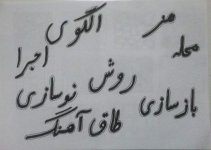 هنر الگوی
محله اجرا
روش نوسازی
بازسازی طاق آهنگ